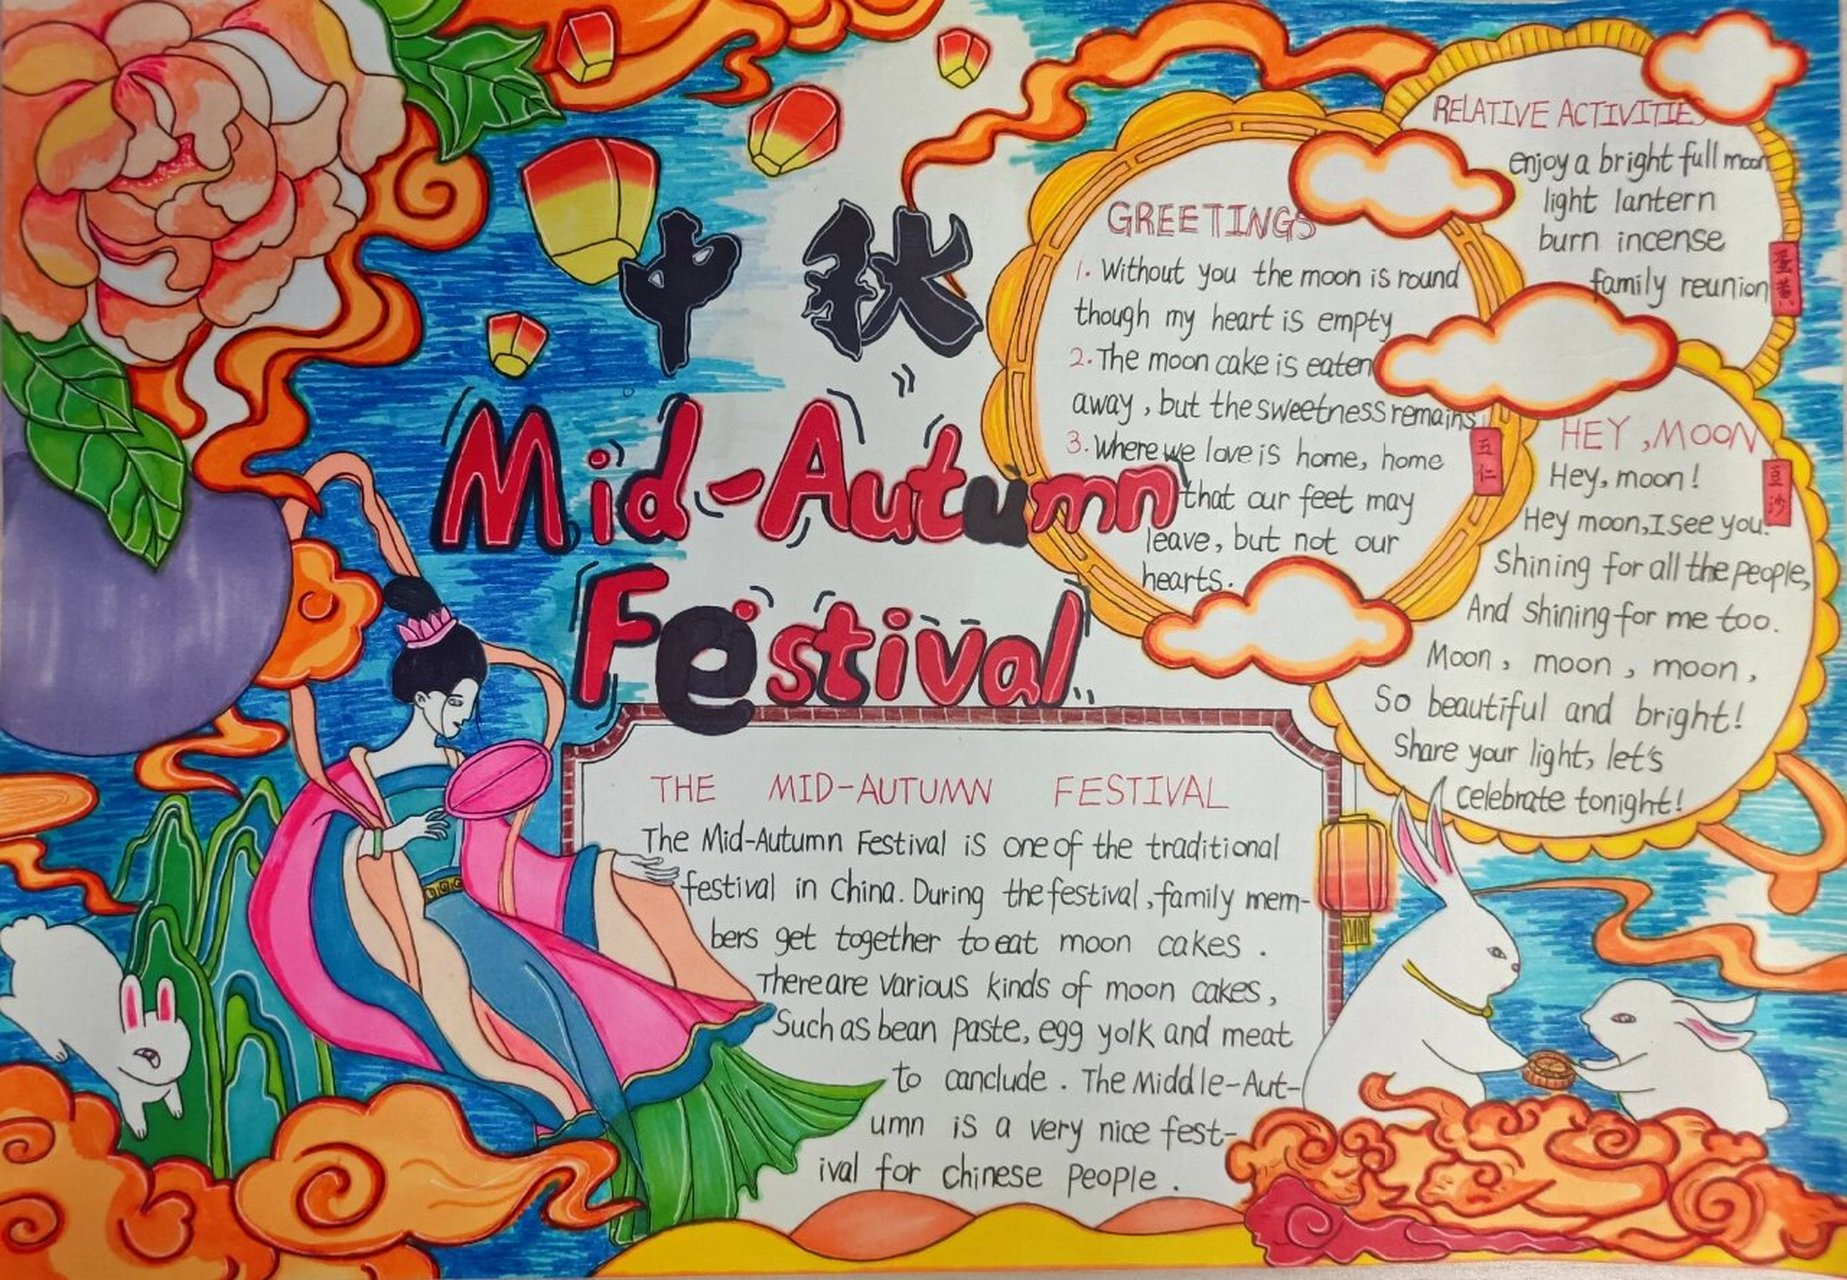 中秋
Mid-Autumn
Festival
GREETINGS
1. Without you the moon is round
though my heart is empty
2. The moon cake is eaten
away, but the sweetness remains
3. Where we love is home, home
that our feet may
leave, but not our
hearts.
五仁
RELATIVE ACTIVITIES
enjoy a bright full moon
light lantern
burn incense
family reunion
蛋黄
HEY, MOON
Hey, moon!
Hey moon, I see you.
Shining for all the people,
And shining for me too.
Moon, moon, moon,
So beautiful and bright!
Share your light, let's
celebrate tonight!
豆沙
THE MID-AUTUMN FESTIVAL
The Mid-Autumn Festival is one of the traditional
festival in China. During the festival, family mem-
bers get together to eat moon cakes.
There are various kinds of moon cakes,
Such as bean paste, egg yolk and meat
to canclude. The Middle-Aut-
umn is a very nice fest-
ival for Chinese people.